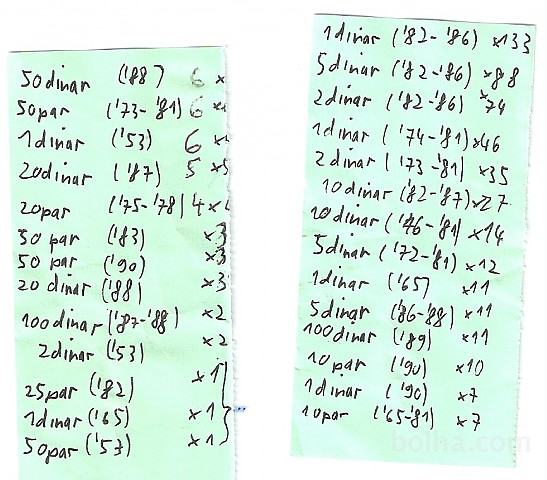 50 dinar ('88) 6 x
50 par ('73-'81) 6 x
1 dinar ('53) 6 x
20 dinar ('87) 5 x5
20 par ('75-'78) 4 x
50 par ('83) x3
50 par ('90) x3
20 dinar ('88) x3
100 dinar ('87-'88) x2
2 dinar ('53) x2
25 par ('82) x1
1 dinar ('65) x1
50 par ('53) x1
1 dinar ('82-'86) x133
5 dinar ('82-'86) x88
2 dinar ('82-'86) x74
1 dinar ('74-'81) x46
2 dinar ('73-'81) x35
10 dinar ('82-'87) x27
10 dinar ('76-'81) x14
5 dinar ('72-'81) x12
1 dinar ('65) x11
5 dinar ('86-'88) x11
100 dinar ('89) x11
10 par ('90) x10
1 dinar ('90) x7
10 par ('65-'81) x7
bolha.com